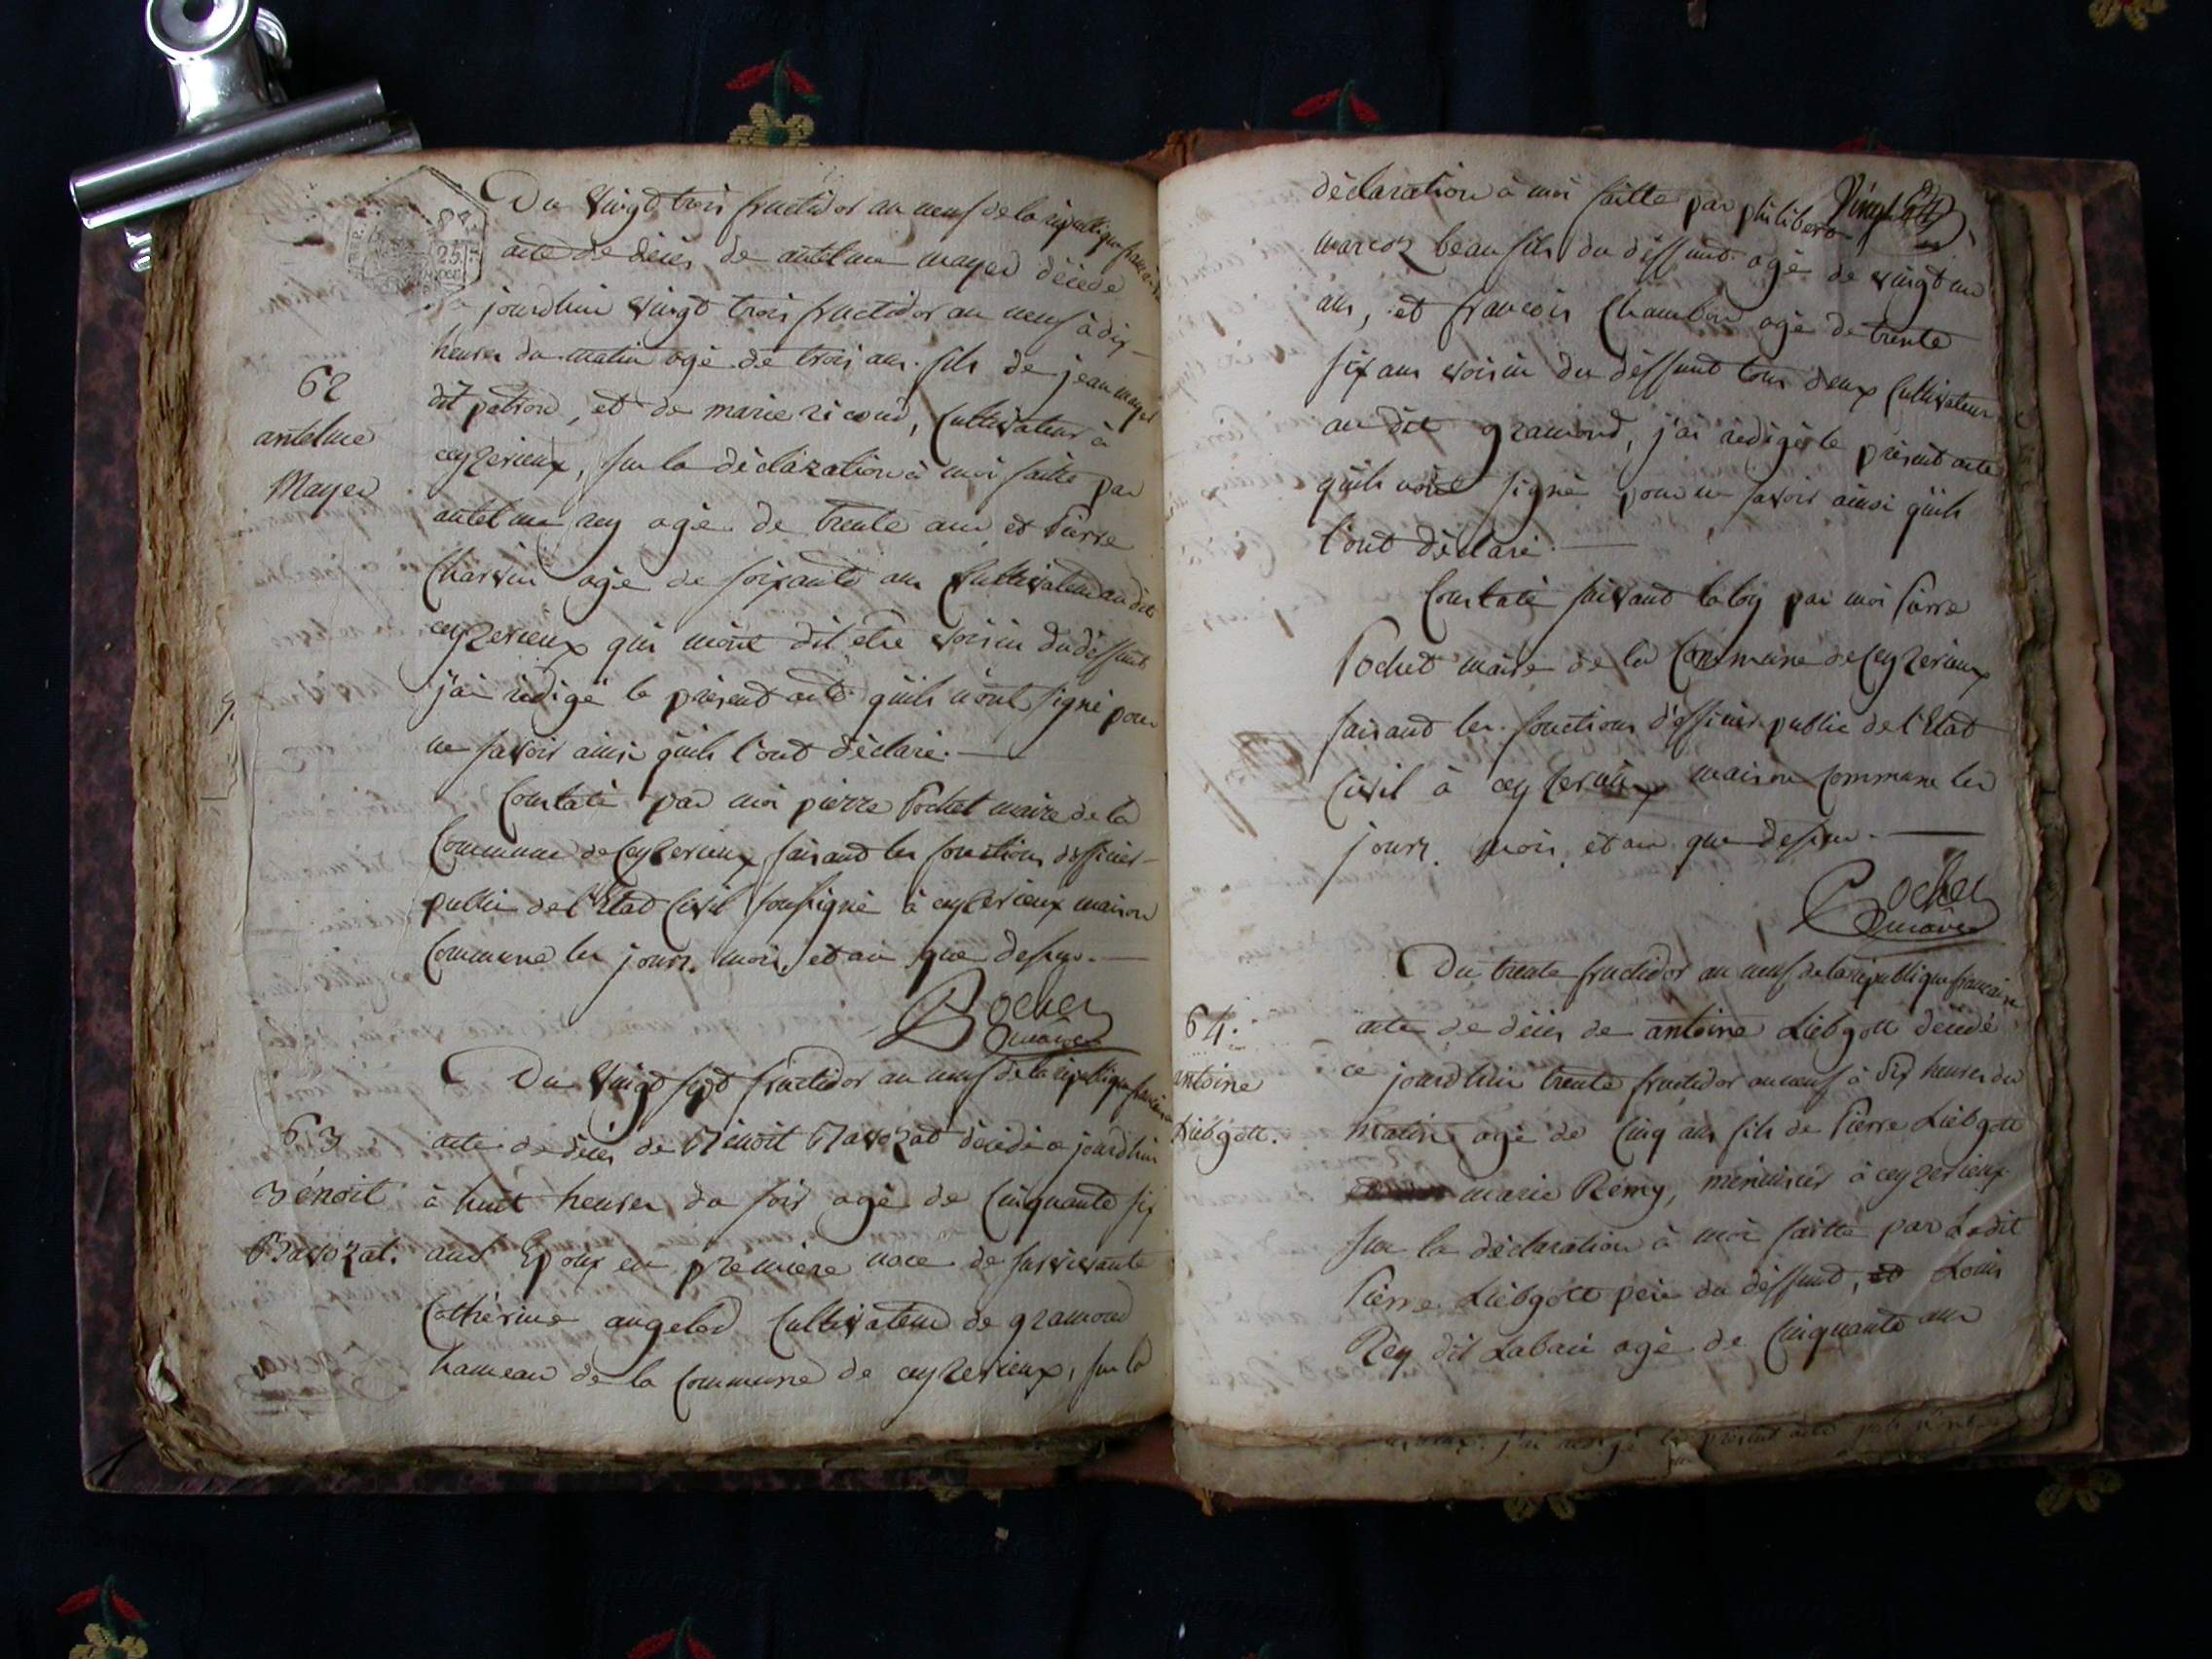 Du vingt trois fructidor an neuf de la republique francaise
acte de décés de antelme mayer décédé
jourdhuin vingt trois fructidor an neuf à dix
heures du matin agé de trois ans fils de jean mayer
dit patron, et de marie ricoud, Cultivateur à
ceyzerieux, sur la déclaration à moi faitte par
antelme rey agé de trente ans et Pierre
Charvin agé de soixante ans Cultivateur au dit
ceyzerieux qui mont dit etre voisin du déffunt
j'ai rédigé le présent acte quils n'ont signé pour
ne savoir ainsi quils l'ont déclaré.
Constaté par moi pierre Pochet maire de la
Commune de Ceyzerieux faisant les fonctions d'officier
public de l'Etat Civil soussigné à ceyzerieux maison
Commune les jours, mois, et an que dessus.
Pochet
maire
62
antelme
Mayer
Du vingt sept fructidor an neuf de la republique francaise
acte de décés de Bénoit Bavozat décédé ce jourdhuin
à huit heures du soir agé de Cinquante six
ans Epoux en premiere noce de survivante
Cathérine angeled Cultivateur de gramond
hameau de la Commune de ceyzerieux, sur la
63
Bénoit
Bavozat.
déclaration à moi faitte par philibert
marcoz beau fils du déffunt agé de vingt un
ans, et francois Chambon agé de trente
six ans voisin du déffunt tous deux Cultivateur
au dit gramond, j'ai rédigé le présent acte
quils n'ont signé pour ne savoir ainsi quils
l'ont déclaré.
Constaté suivant la loy par moi Pierre
Pochet maire de la Commune de Ceyzerieux
faisant les fonctions d'officier public de l'Etat
Civil à ceyzerieux maison Commune les
jours, mois, et an que dessus.
Pochet
maire
Du trente fructidor an neuf de la république francaise
acte de décés de antoine Liebgott décédé
ce jourdhuin trente fructidor an neuf à dix heures du
matin agé de Cinq ans fils de Pierre Liebgott
marie Rémy, ménuisier à ceyzerieux
sur la déclaration à moi faitte par Ledit
Pierre Liebgott pere du déffunt, et Louis
Rey dit Labaü agé de Cinquante ans
64.
antoine
Liébgott.